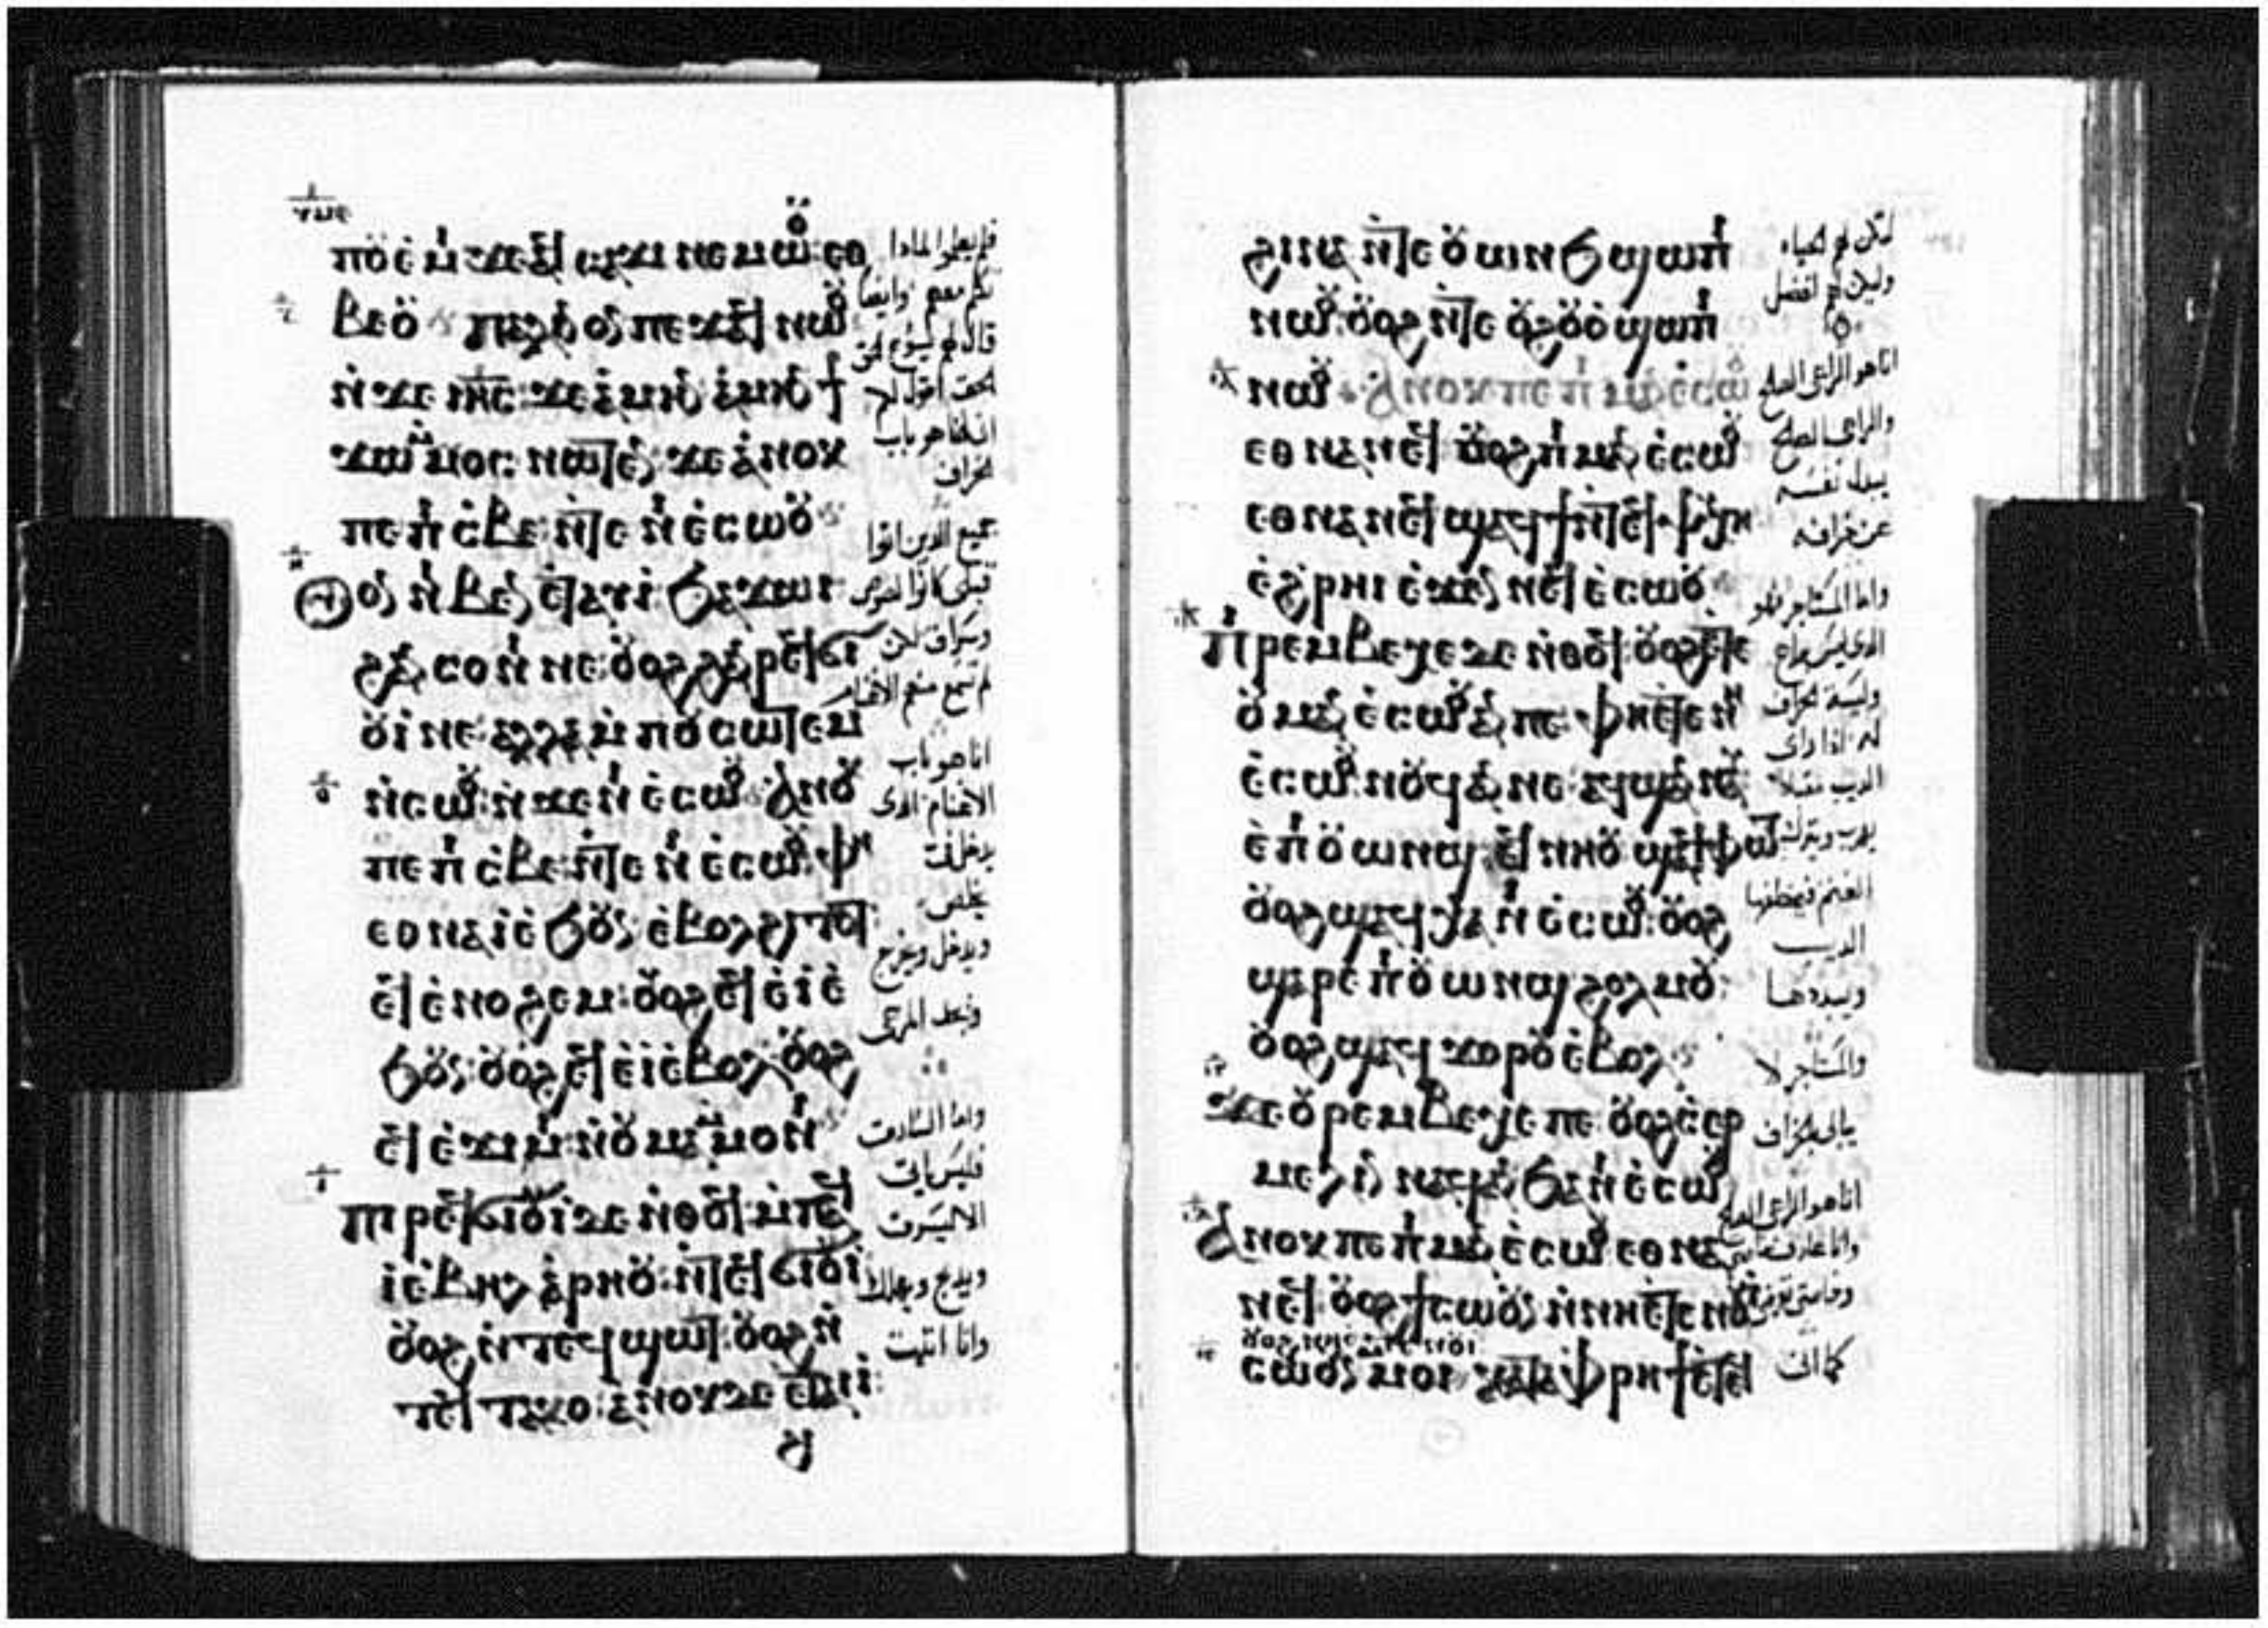 ⲡⲟⲩⲉⲙⲓ ϫⲉⲁϥⲥⲁϫⲓ ⲛⲉⲙⲱⲟⲩ ⲉⲑ
ⲃⲉⲟⲩ ⲡⲁⲗⲓⲛ ⲟⲛ ⲡⲉϫⲁϥ ⲛⲱⲟⲩ
ⲛ̀ϫⲉ ⲓⲏ̅ⲥ̅ ϫⲉ ⲁⲙⲏⲛ ⲁⲙⲏⲛ ϯ
ϫⲱ ⲙ̀ⲙⲟⲥ ⲛⲱⲧⲉⲛ ϫⲉ ⲁⲛⲟⲕ
ⲡⲉ ⲡⲓⲥⲃⲉ ⲛ̀ⲧⲉ ⲛⲓⲉⲥⲱⲟⲩ
ⲟⲩⲟⲛ ⲛⲓⲃⲉⲛ ⲉⲧⲁⲩⲓ ϧⲁϫⲱⲓ
ϩⲁⲛⲥⲟⲛⲓ ⲛⲉ ⲟⲩⲟϩ ϩⲁⲛⲣⲉϥϭⲓ
ⲟⲩⲓ ⲛⲉ ⲁⲗⲗⲁ ⲙ̀ⲡⲟⲩⲥⲱⲧⲉⲙ
ⲛ̀ⲥⲱⲟⲩ ⲛ̀ϫⲉ ⲛⲓⲉⲥⲱⲟⲩ ⲁⲛⲟⲕ
ⲡⲉ ⲡⲓⲥⲃⲉ ⲛ̀ⲧⲉ ⲛⲓⲉⲥⲱⲟⲩ ⲫⲏ
ⲉⲑⲛⲁⲓ ⲉϧⲟⲩⲛ ⲉⲃⲟⲗϩⲓⲧⲟⲧ
ⲉϥⲉⲛⲟϩⲉⲙ ⲟⲩⲟϩ ⲉϥⲉⲓ ⲉ
ϧⲟⲩⲛ ⲟⲩⲟϩ ⲉϥⲉⲓ ⲉⲃⲟⲗ ⲟⲩⲟϩ
ⲉϥⲉϫⲓⲙⲓ ⲛ̀ⲟⲩⲙⲁⲙ̀ⲙⲟⲛⲓ
ⲡⲓⲣⲉϥϭⲓⲟⲩⲓ ⲇⲉ ⲛ̀ⲑⲟϥ ⲙ̀ⲡⲁϥ
ⲓ ⲉⲃⲏⲗ ⲁⲣⲏⲟⲩ ⲛ̀ⲧⲉϥϭⲓⲟⲩⲓ
ⲟⲩⲟϩ ⲛ̀ⲧⲉϥϣⲱⲧ ⲟⲩⲟϩ ⲛ̀
ⲧⲉϥⲧⲁⲕⲟ ⲁⲛⲟⲕ ⲇⲉ ⲉⲧⲁⲓⲓ
فلم يعلموا لماذا
تكلم معهم وايضا
قال لهم يسوع
الحق اقول لكم
اني انا هو باب
الخراف
جميع الذين اتوا
قبلي كانوا لصوص
وسراق لكن
لم تسمع منهم الاغنام
انا هو باب
الاغنام الذى
يدخل
يخلص
ويدخل ويخرج
ويجد المرعى
واما السارق
فليس ياتى
الا ليسرق
ويذبح ويهلك
وانا اتيت
ϩⲓⲛⲁ ⲛ̀ⲧⲉ ⲟⲩⲱⲛϧ ϣⲱⲡⲓ
ⲛⲱⲟⲩ ⲟⲩⲟϩ ⲛ̀ⲧⲉ ⲟⲩϩⲟⲩⲟ ϣⲱⲡⲓ
ⲛⲱⲟⲩ ⲁⲛⲟⲕ ⲡⲉ ⲡⲓⲙⲁⲛⲉⲥⲱⲟⲩ
ⲉⲑⲛⲁⲛⲉϥ ⲟⲩⲟϩ ⲡⲓⲙⲁⲛⲉⲥⲱⲟⲩ
ⲉⲑⲛⲁⲛⲉϥ ϣⲁϥϯ ⲛ̀ⲧⲉϥⲯⲩⲭⲏ
ⲉϩⲣⲏⲓ ⲉϫⲉⲛ ⲛⲉϥⲉⲥⲱⲟⲩ
ⲡⲓⲣⲉⲙⲃⲉⲭⲉ ⲇⲉ ⲛ̀ⲑⲟϥ ⲟⲩⲟϩ ⲉⲧⲉ
ⲟⲩⲙⲁⲛⲉⲥⲱⲟⲩ ⲁⲛ ⲡⲉ ⲫⲏ ⲉⲧⲉ ⲛⲓ
ⲉⲥⲱⲟⲩ ⲛⲟⲩϥ ⲁⲛ ⲛⲉ ⲁϥϣⲁⲛⲛⲁⲩ
ⲉⲡⲓⲟⲩⲱⲛϣ ⲉϥⲛⲏⲟⲩ ϣⲁϥⲫⲱⲧ
ⲟⲩⲟϩ ϣⲁϥⲭⲁ ⲛⲓⲉⲥⲱⲟⲩ ⲟⲩⲟϩ
ϣⲁⲣⲉ ⲡⲓⲟⲩⲱⲛϣ ϩⲟⲗⲙⲟⲩ
ⲟⲩⲟϩ ϣⲁϥϫⲟⲣⲟⲩ ⲉⲃⲟⲗ
ϫⲉ ⲟⲩⲣⲉⲙⲃⲉⲭⲉ ⲡⲉ ⲟⲩⲟϩ ⲥⲉⲣ
ⲙⲉⲗⲓⲛ ⲛⲁϥ ⲁⲛ ϧⲁ ⲛⲓⲉⲥⲱⲟⲩ
ⲁⲛⲟⲕ ⲡⲉ ⲡⲓⲙⲁⲛⲉⲥⲱⲟⲩ ⲉⲑⲛⲁ
ⲛⲉϥ ⲟⲩⲟϩ ϯⲥⲱⲟⲩⲛ ⲛ̀ⲛⲏⲉⲧⲉ ⲛⲟⲩⲓ
ⲟⲩⲟϩ ⲛⲏⲉⲧⲉ ⲛⲟⲩⲓ
ⲥⲱⲟⲩⲛ ⲙ̀ⲙⲟⲓ ⲕⲁⲧⲁ ⲫⲣⲏϯ ⲉⲧⲉϥ
لتكن لهم الحياه
وليكن لهم افضل
انا هو الراعى الصالح
والراعى الصالح
يبذل نفسه
عن خرافه
واما المستاجر
الذى ليس براع
وليست الخراف
له اذا راى
الذيب مقبلا
يهرب ويترك
الغنم فيخطفها
الذيب
ويبددها
والمستاجر لا
يبالى بالخراف
انا هو الراعى الصالح
كما ان